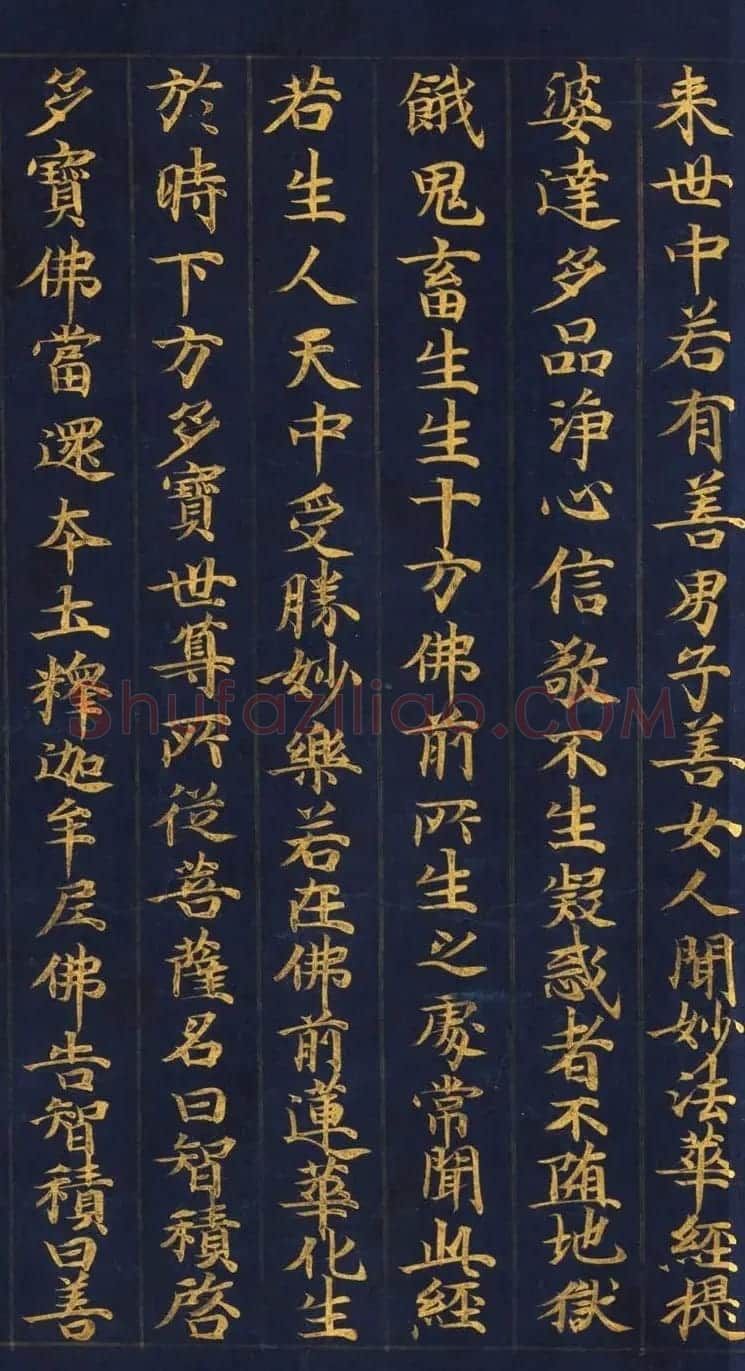 来世中若有善男子善女人聞妙法華經提
婆達多品淨心信敬不生疑惑者不墮地獄
餓鬼畜生生十方佛前所生之處常聞此經
若生人天中受勝妙樂若在佛前蓮華化生
於時下方多寶世尊所從菩薩名曰智積啓
多寶佛當還本土釋迦牟尼佛告智積曰善
shufaziliao.COM